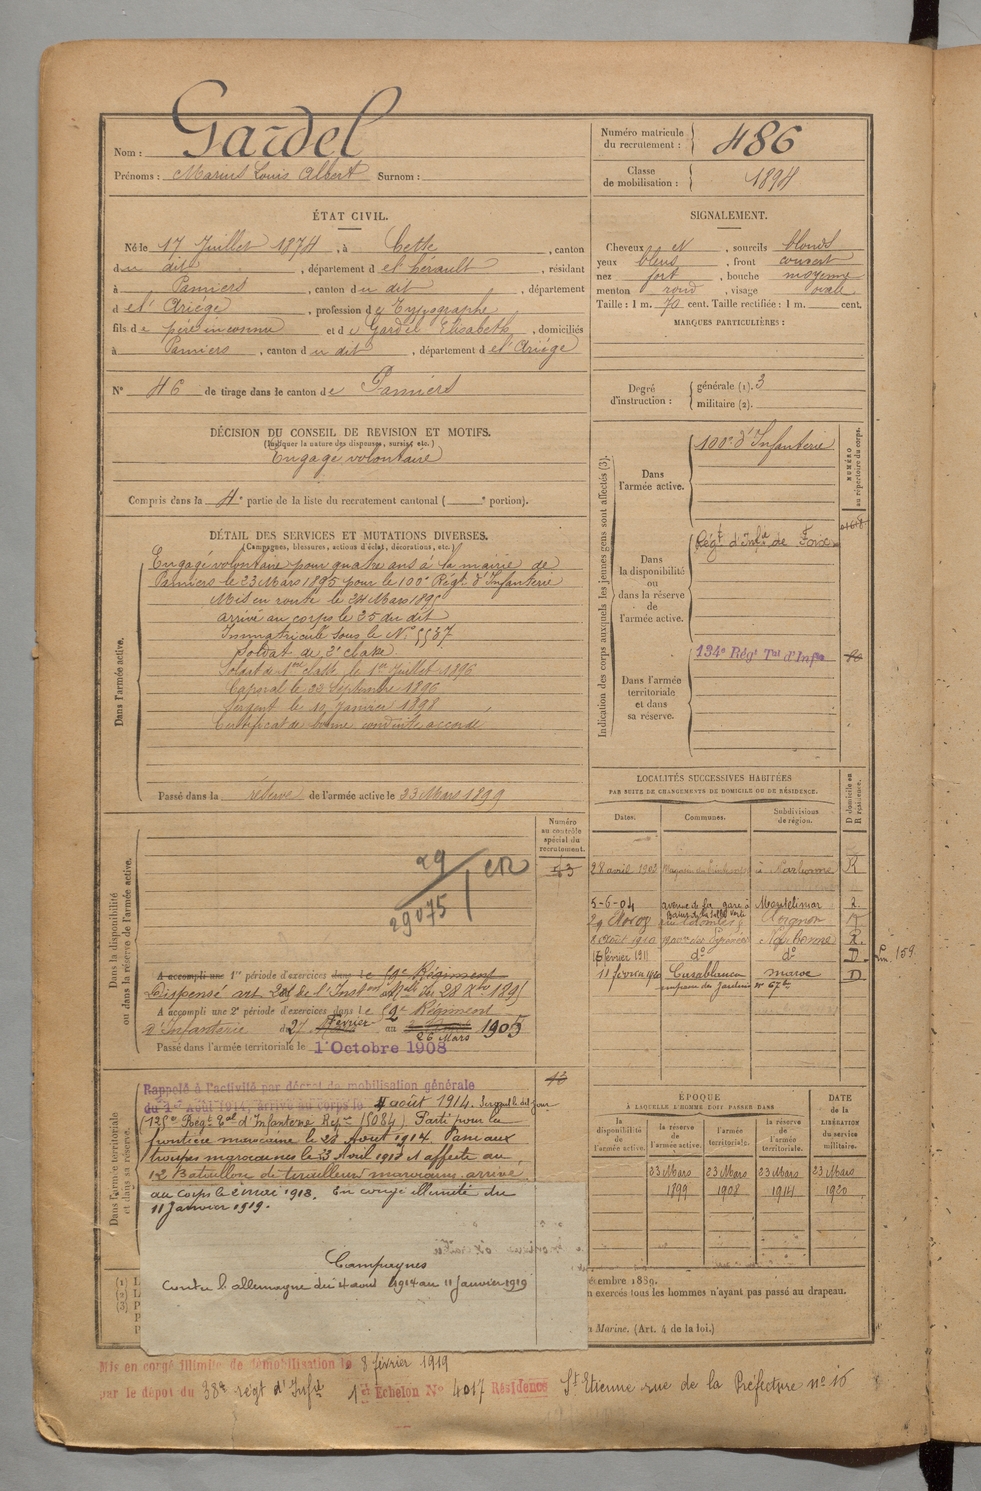 Nom : Gardel
Prénoms : Marius Louis Albert Surnom :
Numéro matricule du recrutement : 486
Classe de mobilisation : 1894
ÉTAT CIVIL.
Né le 17 Juillet 1874, à Cette, canton
du dit, département de l'hérault, résidant
à Pamiers, canton du dit, département
de l'Ariège, profession de Typographe,
fils de père inconnu et de Gardel Elisabeth, domiciliés
à Pamiers, canton du dit, département de l'Ariège
N° 46 de tirage dans le canton de Pamiers
DÉCISION DU CONSEIL DE REVISION ET MOTIFS.
(Indiquer la nature des dispenses, sursis, etc.)
Engagé volontaire
Compris dans la 4e partie de la liste du recrutement cantonal ( e portion).
SIGNALEMENT.
Cheveux et, sourcils blonds
yeux bleus, front couvert
nez fort, bouche moyenne
menton rond, visage ovale.
Taille : 1 m. 70 cent. Taille rectifiée : 1 m. cent.
MARQUES PARTICULIÈRES :
Degré d'instruction : générale (1). 3
militaire (2).
DÉTAIL DES SERVICES ET MUTATIONS DIVERSES.
(Campagnes, blessures, actions d'éclat, décorations, etc.)
Dans l'armée active.
Engagé volontaire pour quatre ans à la mairie de
Pamiers le 23 Mars 1895 pour le 100e Régt d'Infanterie
Mis en route le 24 Mars 1895
arrivé au corps le 25 du dit
Immatriculé sous le N° 5537
Soldat de 2e classe.
Soldat de 1re classe le 1er Juillet 1896
Caporal le 22 Septembre 1896
Sergent le 19 Janvier 1898
Certificat de bonne conduite accordé
Passé dans la réserve de l'armée active le 23 Mars 1899
Indication des corps auxquels les jeunes gens sont affectés (3).
NUMÉRO au répertoire du corps.
Dans l'armée active.
100e d'Infanterie
Dans la disponibilité ou dans la réserve de l'armée active.
Régt d'Infie de Foix
Dans l'armée territoriale et dans sa réserve.
134e Régt Tal d'Infie
LOCALITÉS SUCCESSIVES HABITÉES
PAR SUITE DE CHANGEMENTS DE DOMICILE OU DE RÉSIDENCE.
Dates. Communes. Subdivisions de région. D domicile ou R résidence.
28 avril 1903 à Narbonne R
5-6-04 avenue de la gare à Montélimar R.
Avignon R
8 Août 1910 Narbonne R.
16 février 1911 d° d° D
11 février 1920 Casablanca maroc D
Lin. 159.
Dans la disponibilité ou dans la réserve de l'armée active.
Numéro au contrôle spécial du recrutement.
29
29075
CR
A accompli une 1re période d'exercices dans le 9e Régiment
Dispensé art de l'Inston Mlle du 28 Xbre 1895
A accompli une 2e période d'exercices dans le 9e Régiment
d'Infanterie du 27 Février au 26 Mars 1905
Passé dans l'armée territoriale le 1 Octobre 1908
Dans l'armée territoriale et dans sa réserve.
Rappelé à l'activité par décret de mobilisation générale
du 1er Août 1914, arrivé au corps le 4 août 1914. Sergent le dit jour
(125e Régt Tal d'Infanterie Repre 15084) Parti pour la
frontière marocaine le 23 Août 1914. Passé aux
troupes marocaines le 3 Avril 1918 et affecté au
12 Bataillon de tirailleurs marocains, arrivé
au corps le 2 mai 1918. En congé illimité du
11 Janvier 1919.
Campagnes
Contre l'allemagne du 4 aout 1914 au 11 Janvier 1919
ÉPOQUE
À LAQUELLE L'HOMME DOIT PASSER DANS
la disponibilité de l'armée active.
la réserve de l'armée active.
l'armée territoriale.
la réserve de l'armée territoriale.
DATE de la LIBÉRATION du service militaire.
23 Mars 23 Mars 23 Mars 23 Mars
1899 1908 1914 1920
écembre 1889.
n exercés tous les hommes n'ayant pas passé au drapeau.
Marine. (Art. 4 de la loi.)
Mis en congé illimité de démobilisation le 8 février 1919
par le dépôt du 38e régt d'Infie 1er Échelon N° 4017 Résidence St Etienne rue de la Préfecture n° 16